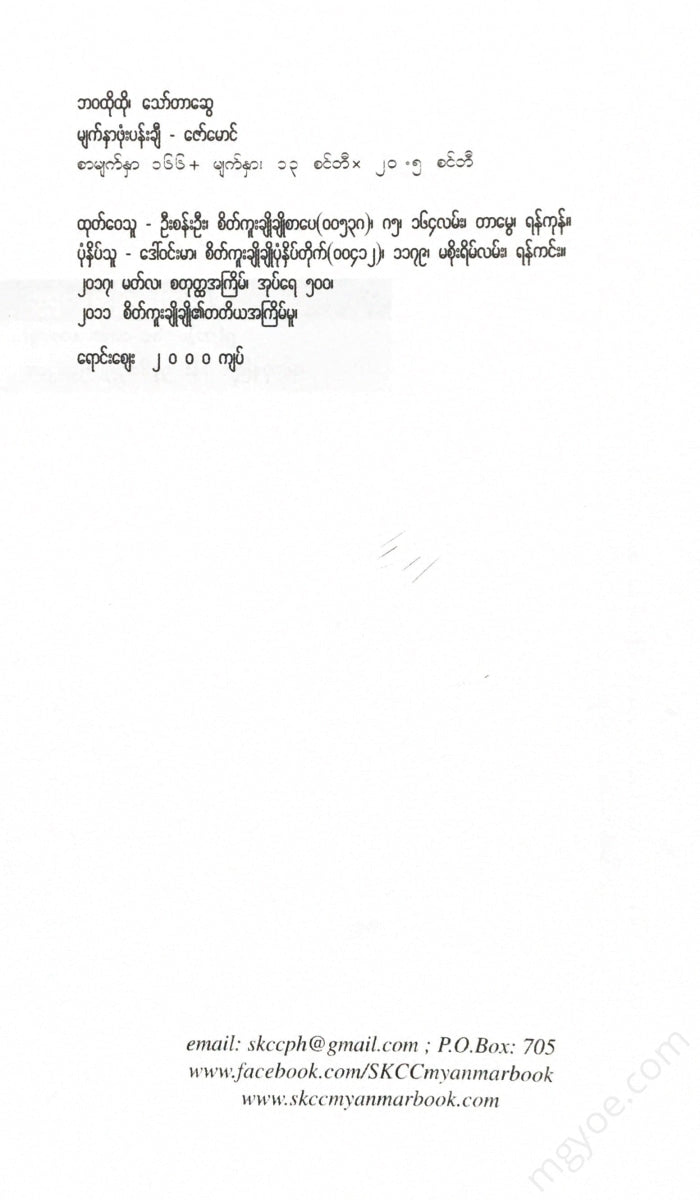 ဘဝထိုထို၊ သော်တာဆွေ
မျက်နှာဖုံးပန်းချီ - ဇော်မောင်
စာမျက်နှာ ၁၆၆+ မျက်နှား ၁၃ စင်တီ× ၂၀.၅ စင်တီ
ထုတ်ဝေသူ - ဦးစန်းဦး၊ စိတ်ကူးချိုချိုစာပေ(၀၀၅၃၈)၊ ဂ၅၊ ၁၆၄လမ်း၊ တာမွေ၊ ရန်ကုန်။
ပုံနှိပ်သူ - ဒေါ်ဝင်းမာ၊ စိတ်ကူးချိုချိုပုံနှိပ်တိုက်(၀၀၄၁၂)၊ ၁၁၇၉၊ မစိုးရိမ်လမ်း၊ ရန်ကင်း။
၂၀၁၇၊ မတ်လ၊ စတုတ္ထအကြိမ်၊ အုပ်ရေ ၅၀၀၊
၂၀၁၁ စိတ်ကူးချိုချို၏တတိယအကြိမ်မူ၊
ရောင်းဈေး ၂ ၀ ၀ ၀ ကျပ်
email: skccph@gmail.com ; P.O.Box: 705
www.facebook.com/SKCCmyanmarbook
www.skccmyanmarbook.com
mgyoe.com